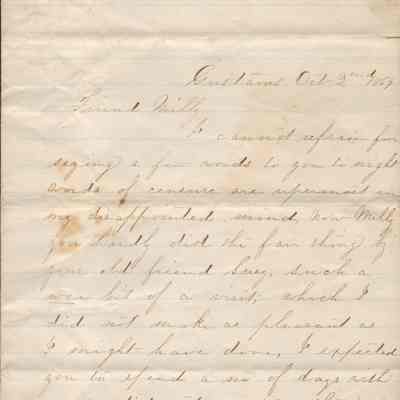 Gustavus Oct 2nd 1869
Friend Milly
I cannot refrain for
saying a few words to you to night
words of censure are upermost in
my disappointed mind, now Milly
you hardly did the fair thing by
your old friend Lucy, such a
wee bit of a visit, which I
did not make as pleasant as
I might have done, I expected
you to spend a no of days with